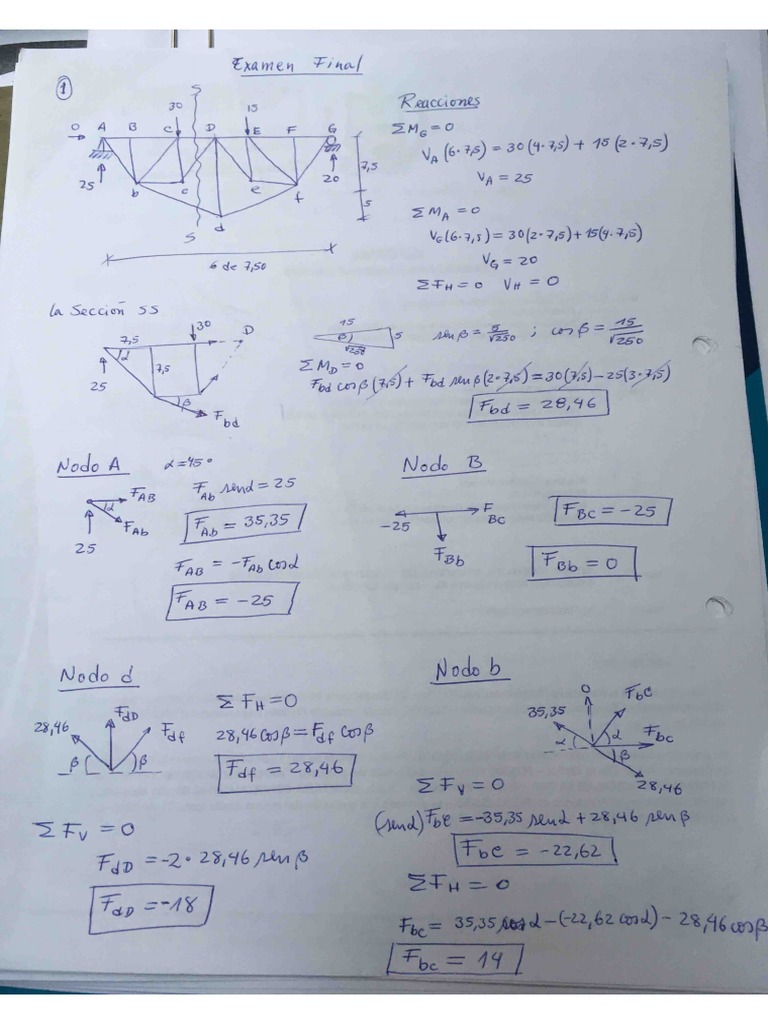 Examen Final
1
Reacciones
S
30
15
0
A B C D E F G
25
b c d e f
20
7,5
5
S
6 de 7,50
ΣM_G = 0
V_A (6·7,5) = 30(4·7,5) + 15(2·7,5)
V_A = 25
ΣM_A = 0
V_G (6·7,5) = 30(2·7,5) + 15(4·7,5)
V_G = 20
ΣF_H = 0 V_H = 0
La Sección SS
7,5
30
D
α
7,5
25
β
F_bd
15
β
5
√250
sen β = 5/√250 ; cos β = 15/√250
ΣM_D = 0
F_bd cos β (7,5) + F_bd sen β (2·7,5) = 30(7,5) − 25(3·7,5)
F_bd = 28,46
Nodo A α = 45°
F_AB
α
F_Ab
25
F_Ab sen α = 25
F_Ab = 35,35
F_AB = −F_Ab cos α
F_AB = −25
Nodo B
−25
F_BC
F_Bb
F_BC = −25
F_Bb = 0
Nodo d
28,46
F_dD
F_df
β β
ΣF_H = 0
28,46 cos β = F_df cos β
F_df = 28,46
ΣF_V = 0
F_dD = −2·28,46 sen β
F_dD = −18
Nodo b
0
35,35
F_bC
α
α
F_bc
β
28,46
ΣF_V = 0
(sen α) F_bC = −35,35 sen α + 28,46 sen β
F_bC = −22,62
ΣF_H = 0
F_bc = 35,35 cos α − (−22,62 cos α) − 28,46 cos β
F_bc = 14